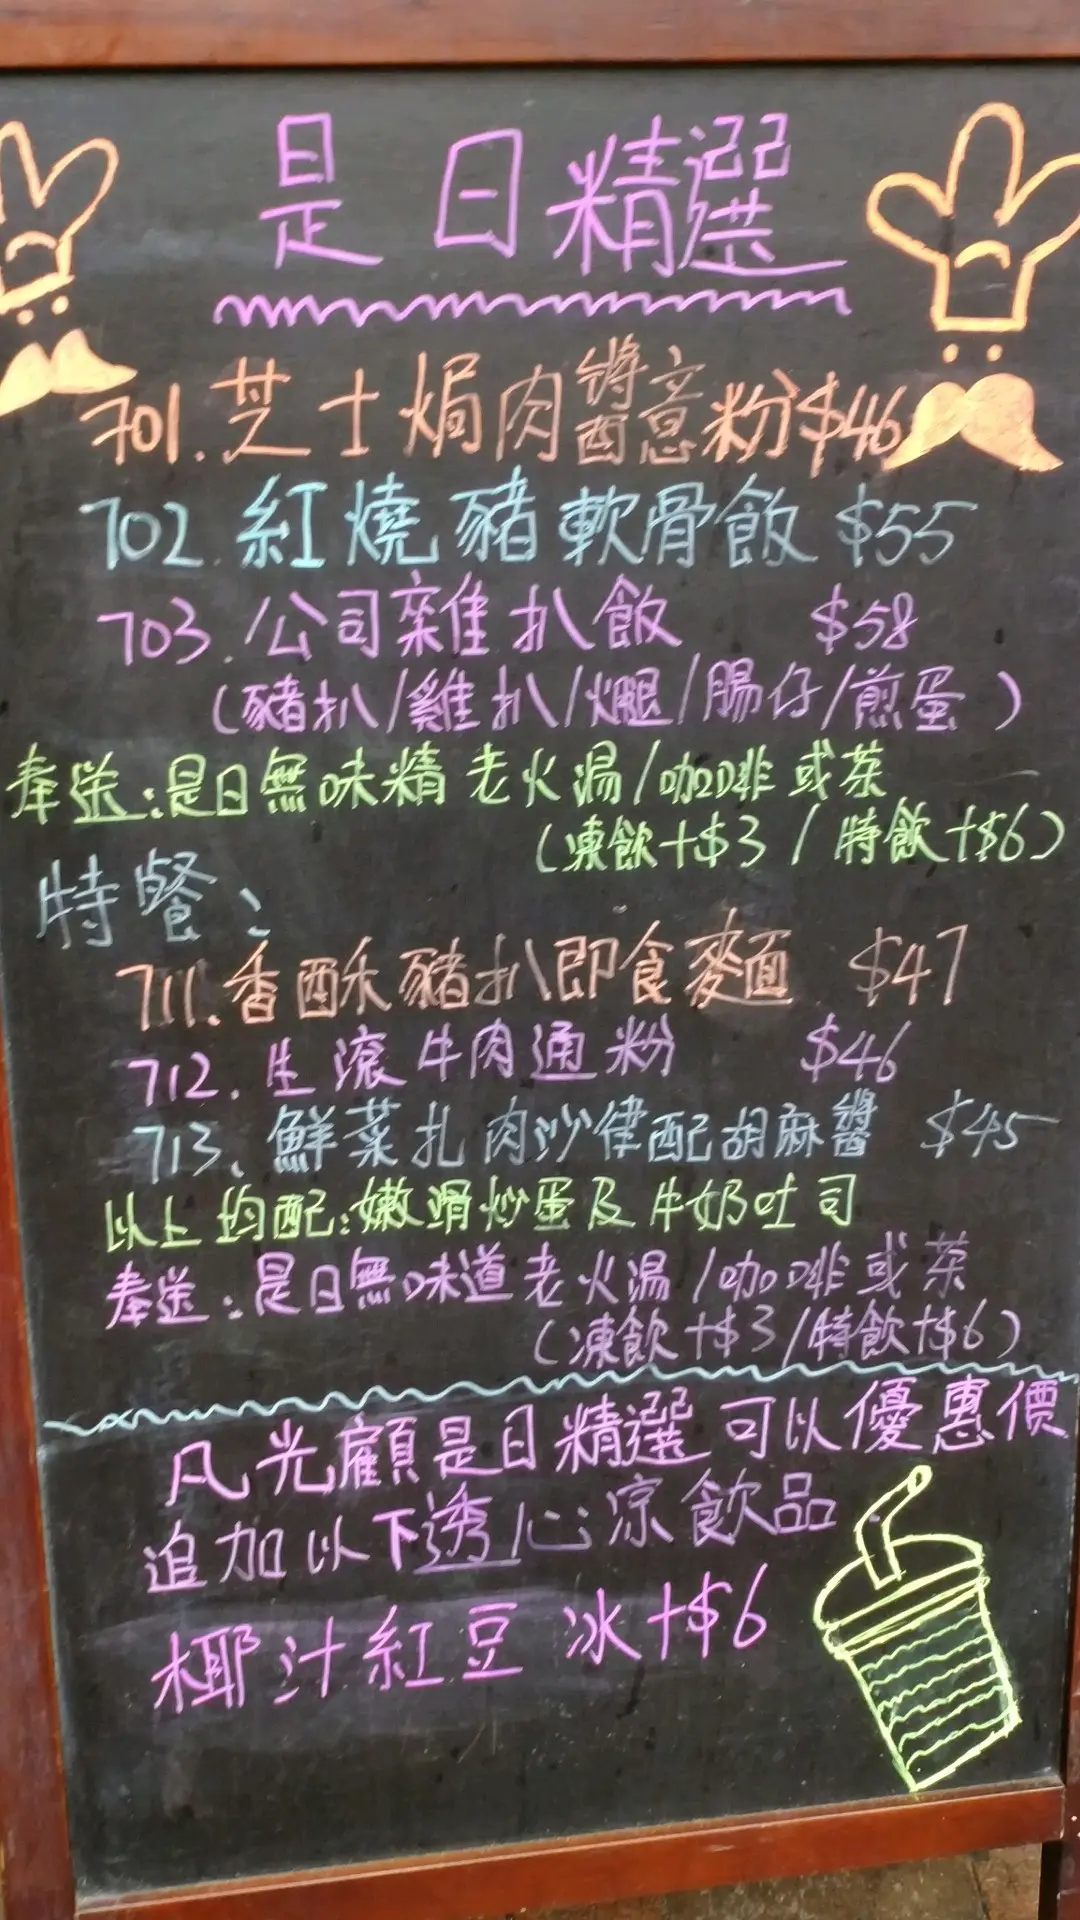 是日精選
701.芝士焗肉醬意粉$46
702.紅燒豬軟骨飯 $55
703.公司雜扒飯 $58
(豬扒/雞扒/火腿/腸仔/煎蛋)
奉送:是日無味精老火湯/咖啡或茶
(凍飲+$3/特飲+$6)
特餐:
711.香酥豬扒即食麥面 $47
712.生滾牛肉通粉 $46
713.鮮菜扎肉沙律配胡麻醬 $45
以上均配:嫩滑炒蛋及牛奶吐司
奉送:是日無味道老火湯/咖啡或茶
(凍飲+$3/特飲+$6)
凡光顧是日精選可以優惠價
追加以下透心涼飲品
椰汁紅豆冰+$6